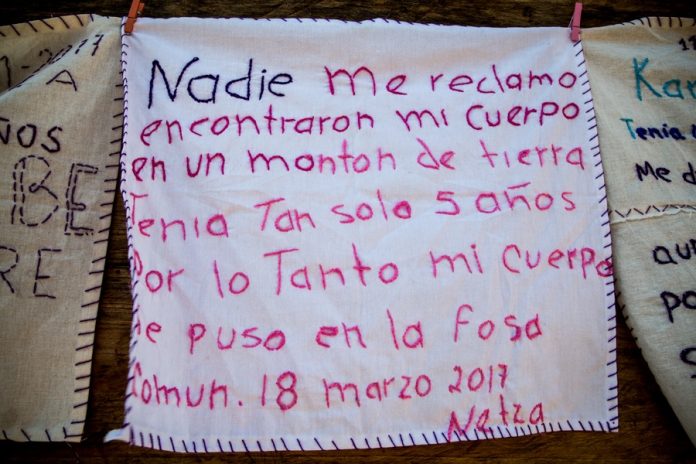 Nadie me reclamo
encontraron mi cuerpo
en un monton de tierra
Tenia Tan solo 5 años
Por lo Tanto mi cuerpo
se puso en la fosa
Comun. 18 marzo 2017
Netza
2017
A
ños
BE
RE
Kar
Tenia
Me d
au
po
S